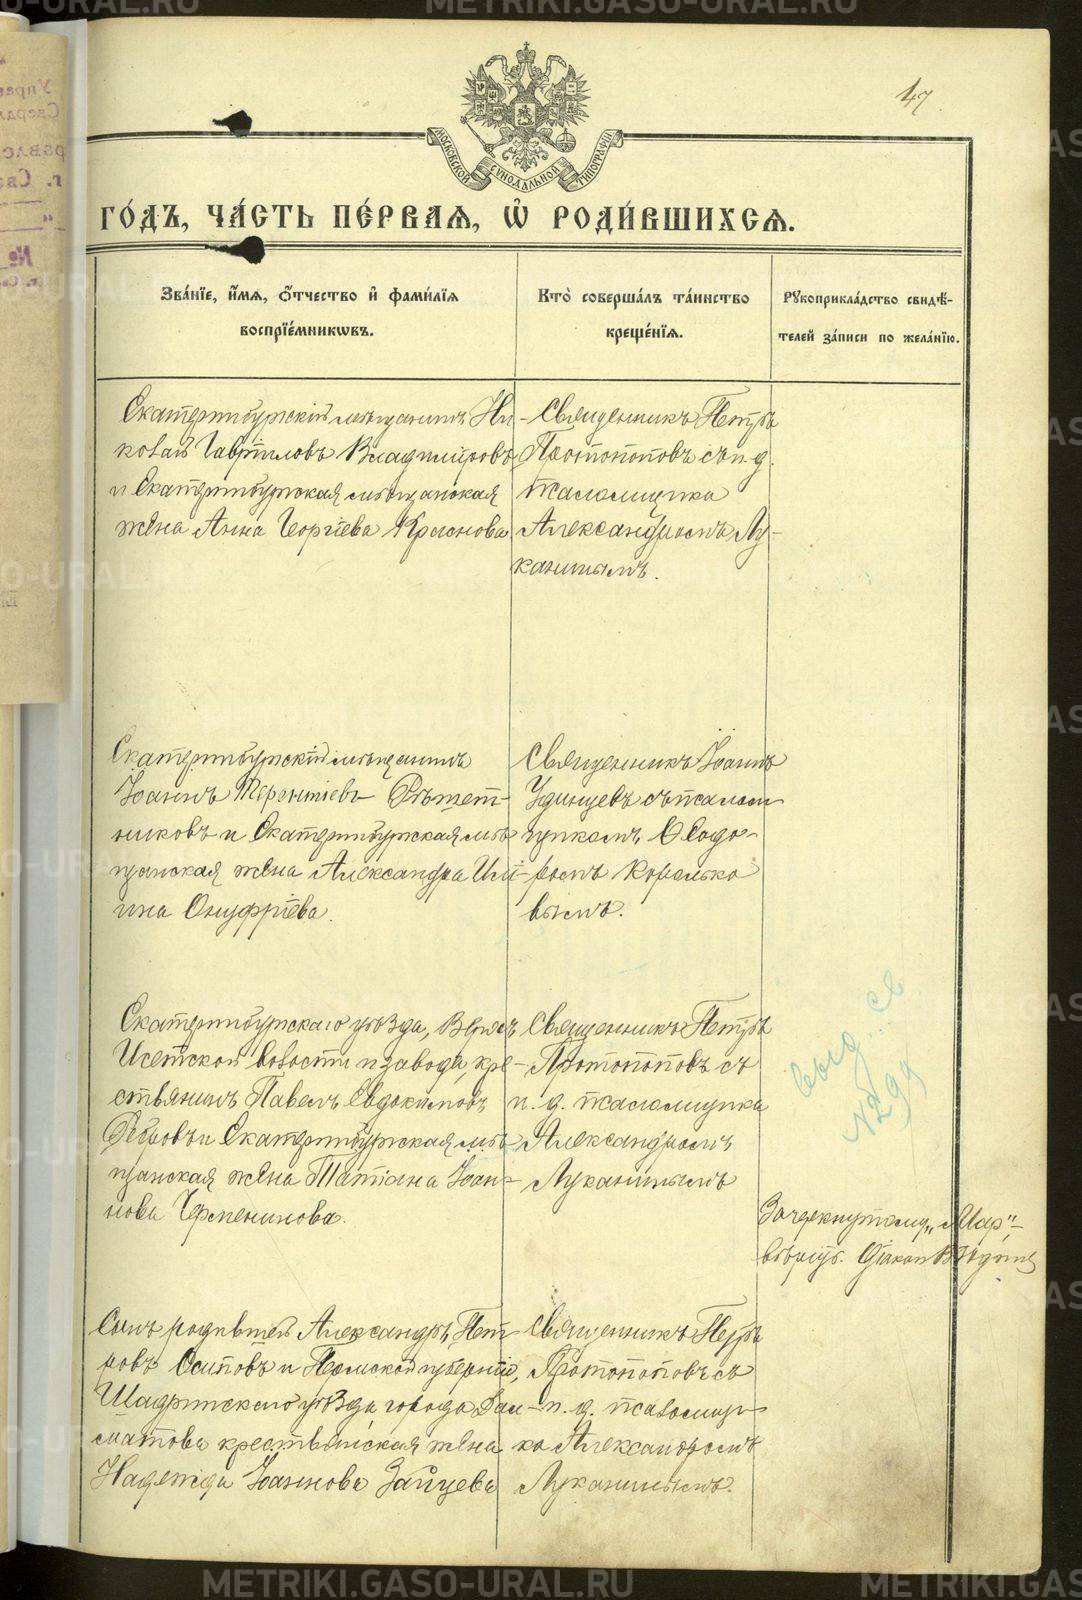 47
МОСКОВСКОЙ СѴНОДАЛЬНОЙ ТИПОГРАФІИ
ГО́ДЪ, ЧА́СТЬ ПЕ́РВАѦ, Ѽ РОДИ́ВШИХСѦ.
Зва́нїе, и́мѧ, о́тчество и҆ фами́лїѧ
воспрїе́мникѡвъ.
Кто̀ соверша́лъ та́инство
креще́нїѧ.
Рꙋкоприкла́дство свидѣ́-
телей за́писи по жела́нїю.
Екатеринбургскій мѣщанинъ Ни-
колай Гавріиловъ Владиміровъ
и Екатеринбургская мѣщанская
жена Анна Георгіева Краснова
Священникъ Петръ
Протопоповъ съ и. д.
псаломщика
Александромъ Лу-
канинымъ.
Екатеринбургскій мѣщанинъ
Іоаннъ Терентіевъ Рѣшет-
никовъ и Екатеринбургская мѣ-
щанская жена Александра Илі-
ина Онуфріева.
Священникъ Іоаннъ
Удинцевъ съ псалом-
щикомъ Ѳеодо-
ромъ Корелько
вымъ.
Екатеринбургскаго уѣзда, Верхъ
Исетской волости и завода, кре-
стьянинъ Павелъ Евдокимовъ
Петровъ и Екатеринбургская мѣ-
щанская жена Татіана Іоан-
нова Черменинова.
Священникъ Петръ
Протопоповъ съ
и. д. псаломщика
Александромъ
Луканинымъ
выд. св
№299
Зачеркнутому "Мар"
вѣрить. Діаконъ
Сынъ родителей Александръ Пет-
ровъ Осиповъ и Пермской губерніи,
Шадринскаго уѣзда города Дал-
матова крестьянская жена
Надежда Іоаннова Зайцева
Священникъ Петръ
Протопоповъ съ
и. д. псаломщи-
ка Александромъ
Луканинымъ.
METRIKI.GASO-URAL.RU